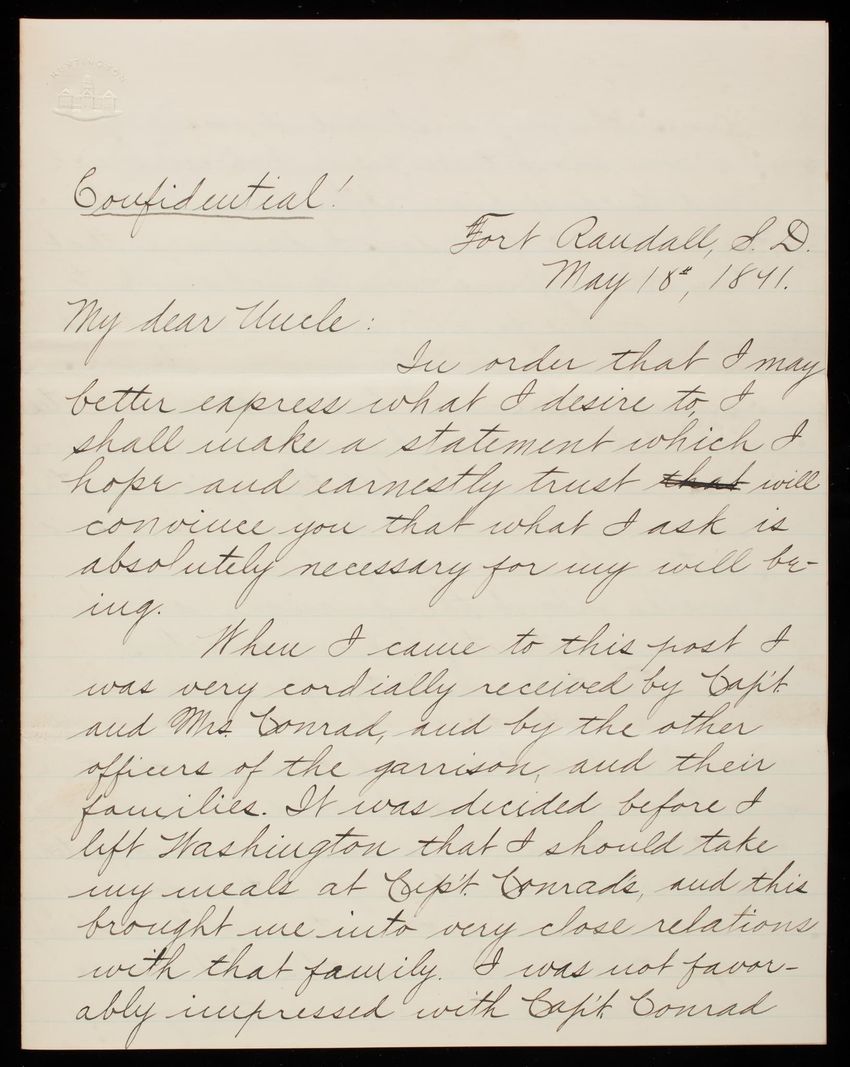 HUNTINGTON
Confidential!
Fort Randall, S. D.
May 18th, 1891.
My dear Uncle:
In order that I may
better express what I desire to, I
shall make a statement which I
hope and earnestly trust that will
convince you that what I ask is
absolutely necessary for my will be-
ing.
When I came to this post I
was very cordially received by Cap't.
and Mrs. Conrad, and by the other
officers of the garrison, and their
families. It was decided before I
left Washington that I should take
my meals at Cap't. Conrad's, and this
brought me into very close relations
with that family. I was not favor-
ably impressed with Cap't. Conrad